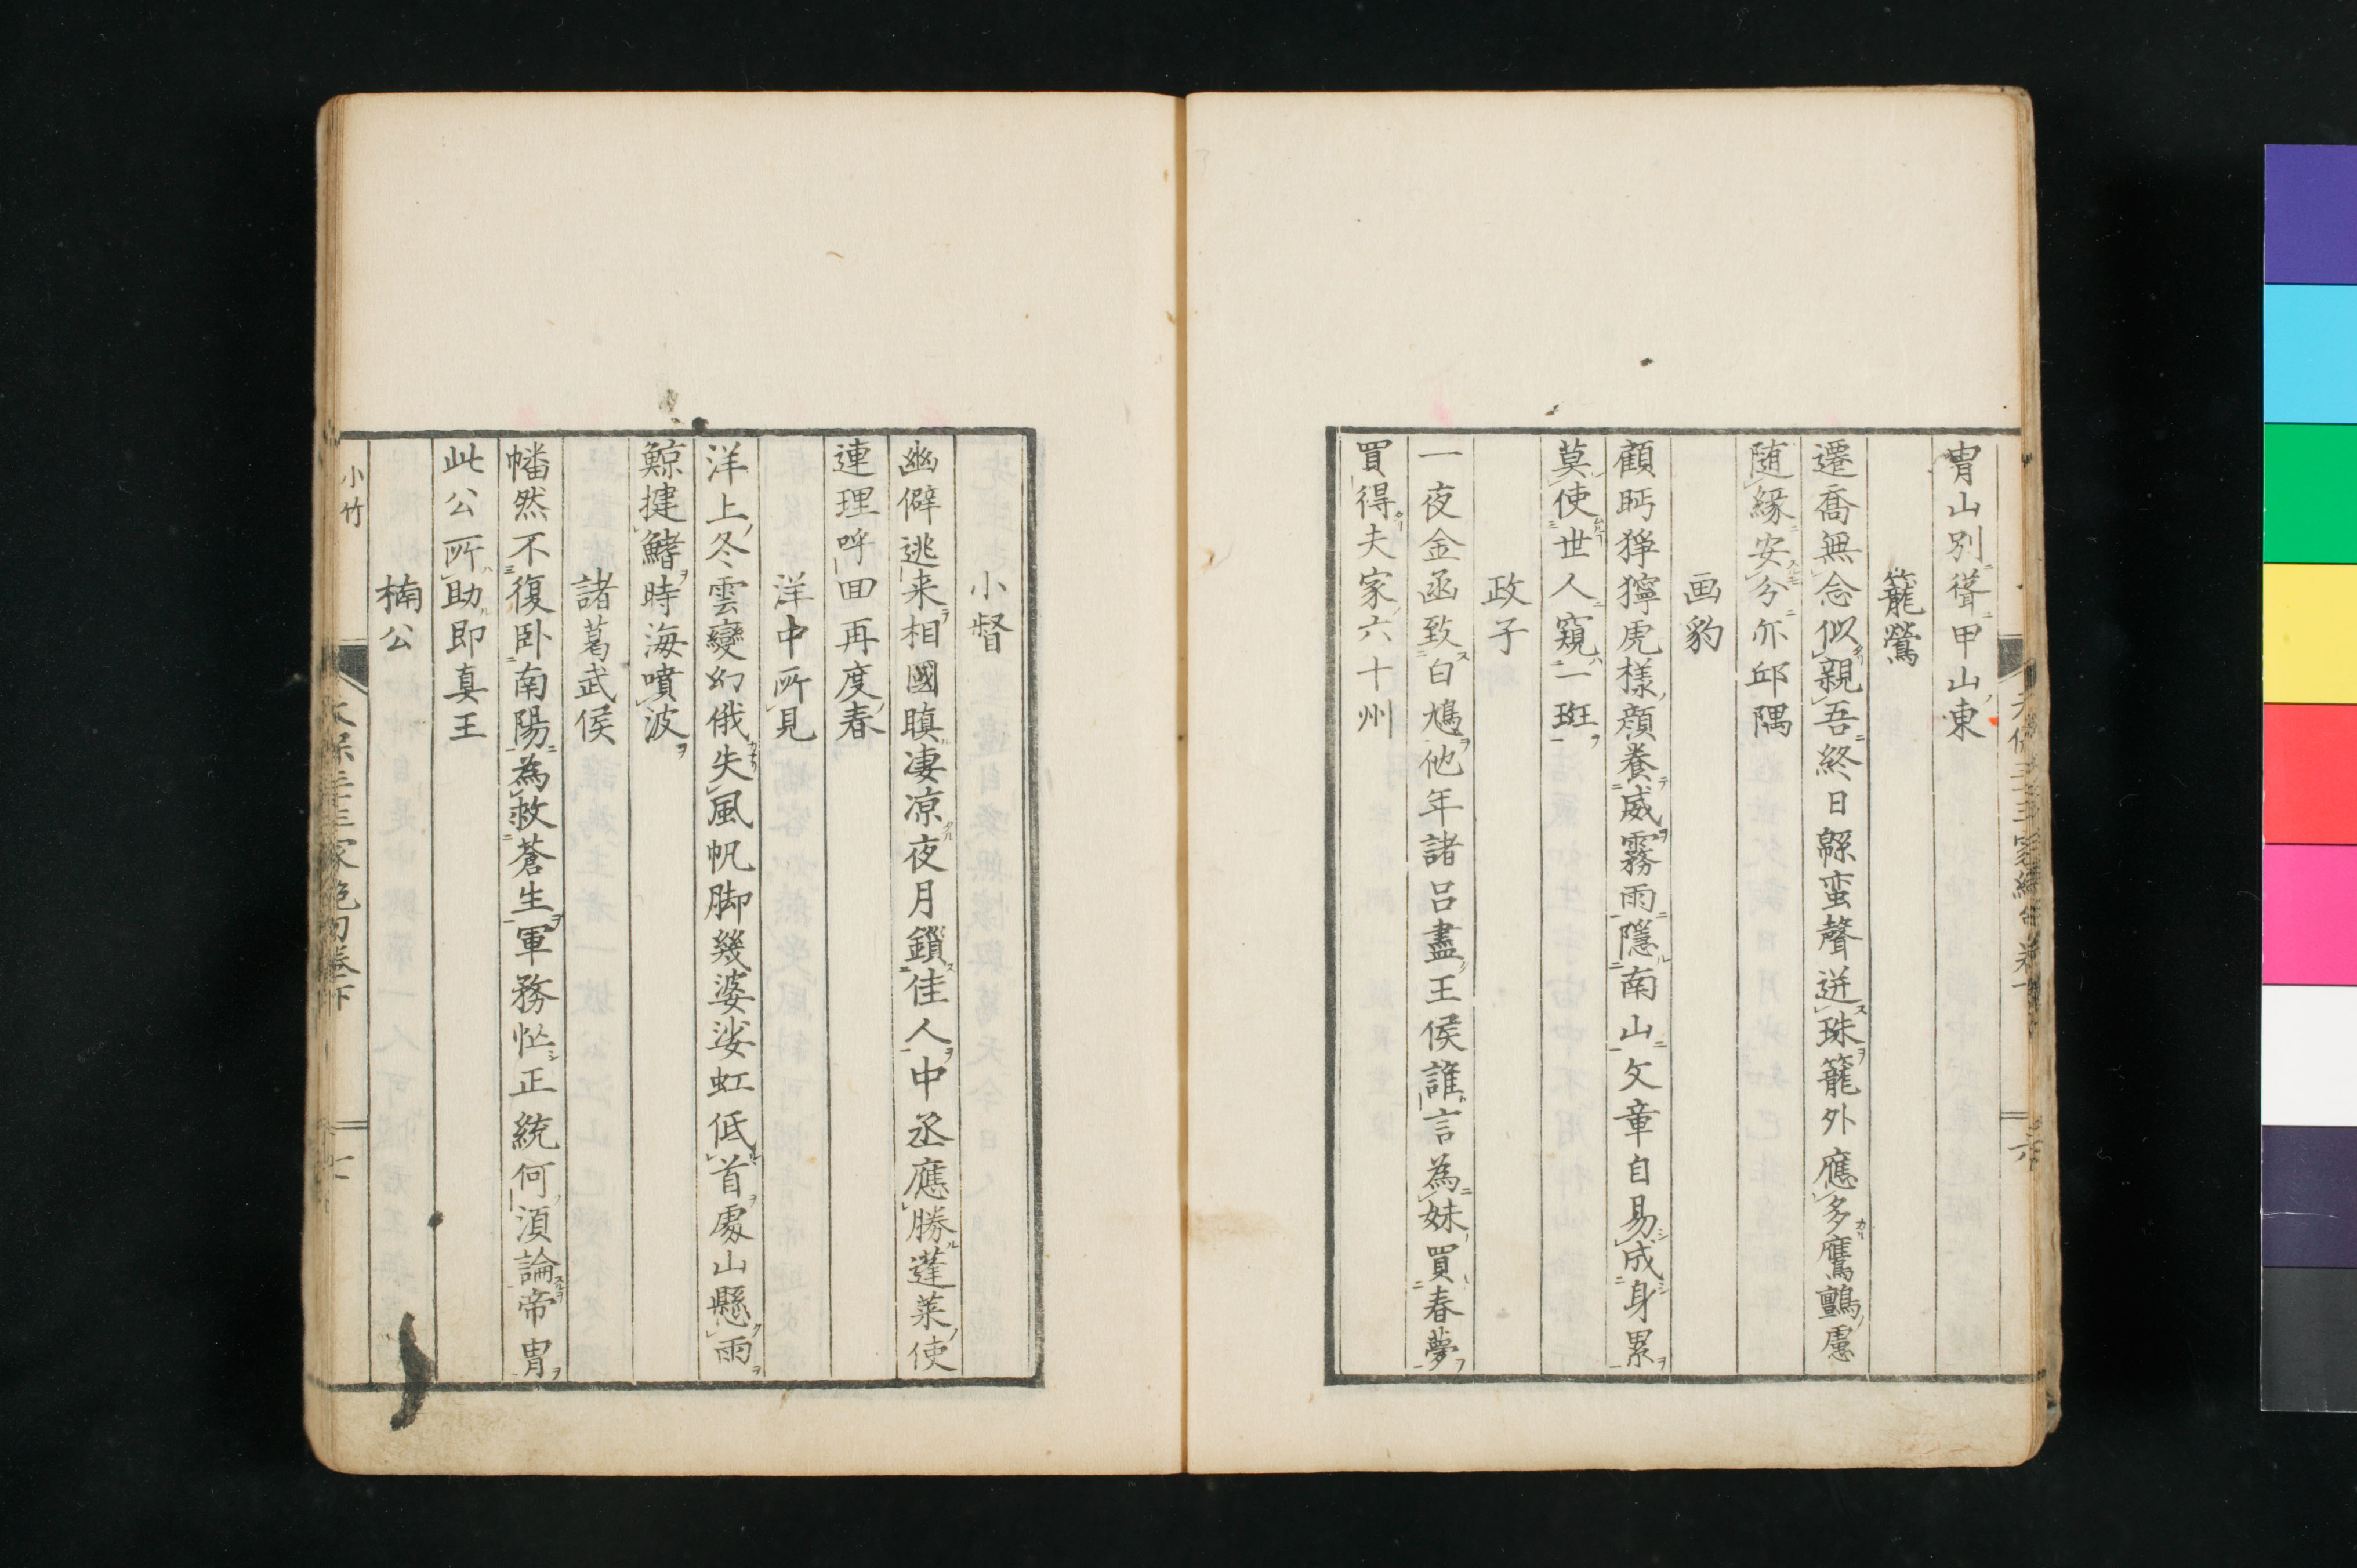 冑山別聳甲山東
籠鶯
遷喬無念似親吾終日緜蛮聲迸珠籠外應多鷹鸇慮
随縁安分亦邱隅
画豹
顧眄猙獰虎様顔養威霧雨隠南山文章自易成身累
莫使世人窺一斑
政子
一夜金函致白鳩他年諸呂盡王侯誰言為妹買春夢
買得夫家六十州
小督
幽僻逃来相國瞋凄凉夜月鎖佳人中丞應勝蓬莱使
連理呼回再度春
洋中所見
洋上冬雲變幻俄失風帆脚幾婆娑虹低首處山懸雨
鯨揵鰭時海噴波
諸葛武侯
幡然不復臥南陽為救蒼生軍務忙正統何湏論帝冑
此公所助即真王
楠公
小竹
家絶句巻下